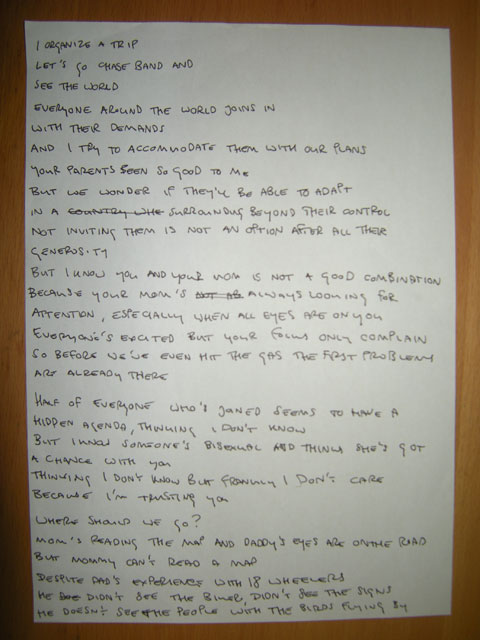 I ORGANIZE A TRIP
LET'S GO CHASE BAND AND
SEE THE WORLD
EVERYONE AROUND THE WORLD JOINS IN
WITH THEIR DEMANDS
AND I TRY TO ACCOMMODATE THEM WITH OUR PLANS
YOUR PARENTS BEEN SO GOOD TO ME
BUT WE WONDER IF THEY'LL BE ABLE TO ADAPT
IN A COUNTRY WHE SURROUNDING BEYOND THEIR CONTROL
NOT INVITING THEM IS NOT AN OPTION AFTER ALL THEIR
GENEROSITY
BUT I KNOW YOU AND YOUR MOM IS NOT A GOOD COMBINATION
BECAUSE YOUR MOM'S NOT AB ALWAYS LOOKING FOR
ATTENTION, ESPECIALLY WHEN ALL EYES ARE ON YOU
EVERYONE'S EXCITED BUT YOUR FOLKS ONLY COMPLAIN
SO BEFORE WE'VE EVEN HIT THE GAS THE FIRST PROBLEMS
ARE ALREADY THERE
HALF OF EVERYONE WHO'S JOINED SEEMS TO HAVE A
HIDDEN AGENDA, THINKING I DON'T KNOW
BUT I KNOW SOMEONE'S BISEXUAL AND THINKS SHE'S GOT
A CHANCE WITH YOU
THINKING I DON'T KNOW BUT FRANKLY I DON'T CARE
BECAUSE I'M TRUSTING YOU
WHERE SHOULD WE GO?
MOM'S READING THE MAP AND DADDY'S EYES ARE ON THE ROAD
BUT MOMMY CAN'T READ A MAP
DESPITE DAD'S EXPERIENCE WITH 18 WHEELERS
HE DIDN'T SEE THE BIKER, DIDN'T SEE THE SIGNS
HE DOESN'T SEE THE PEOPLE WITH THE BIRDS FLYING BY